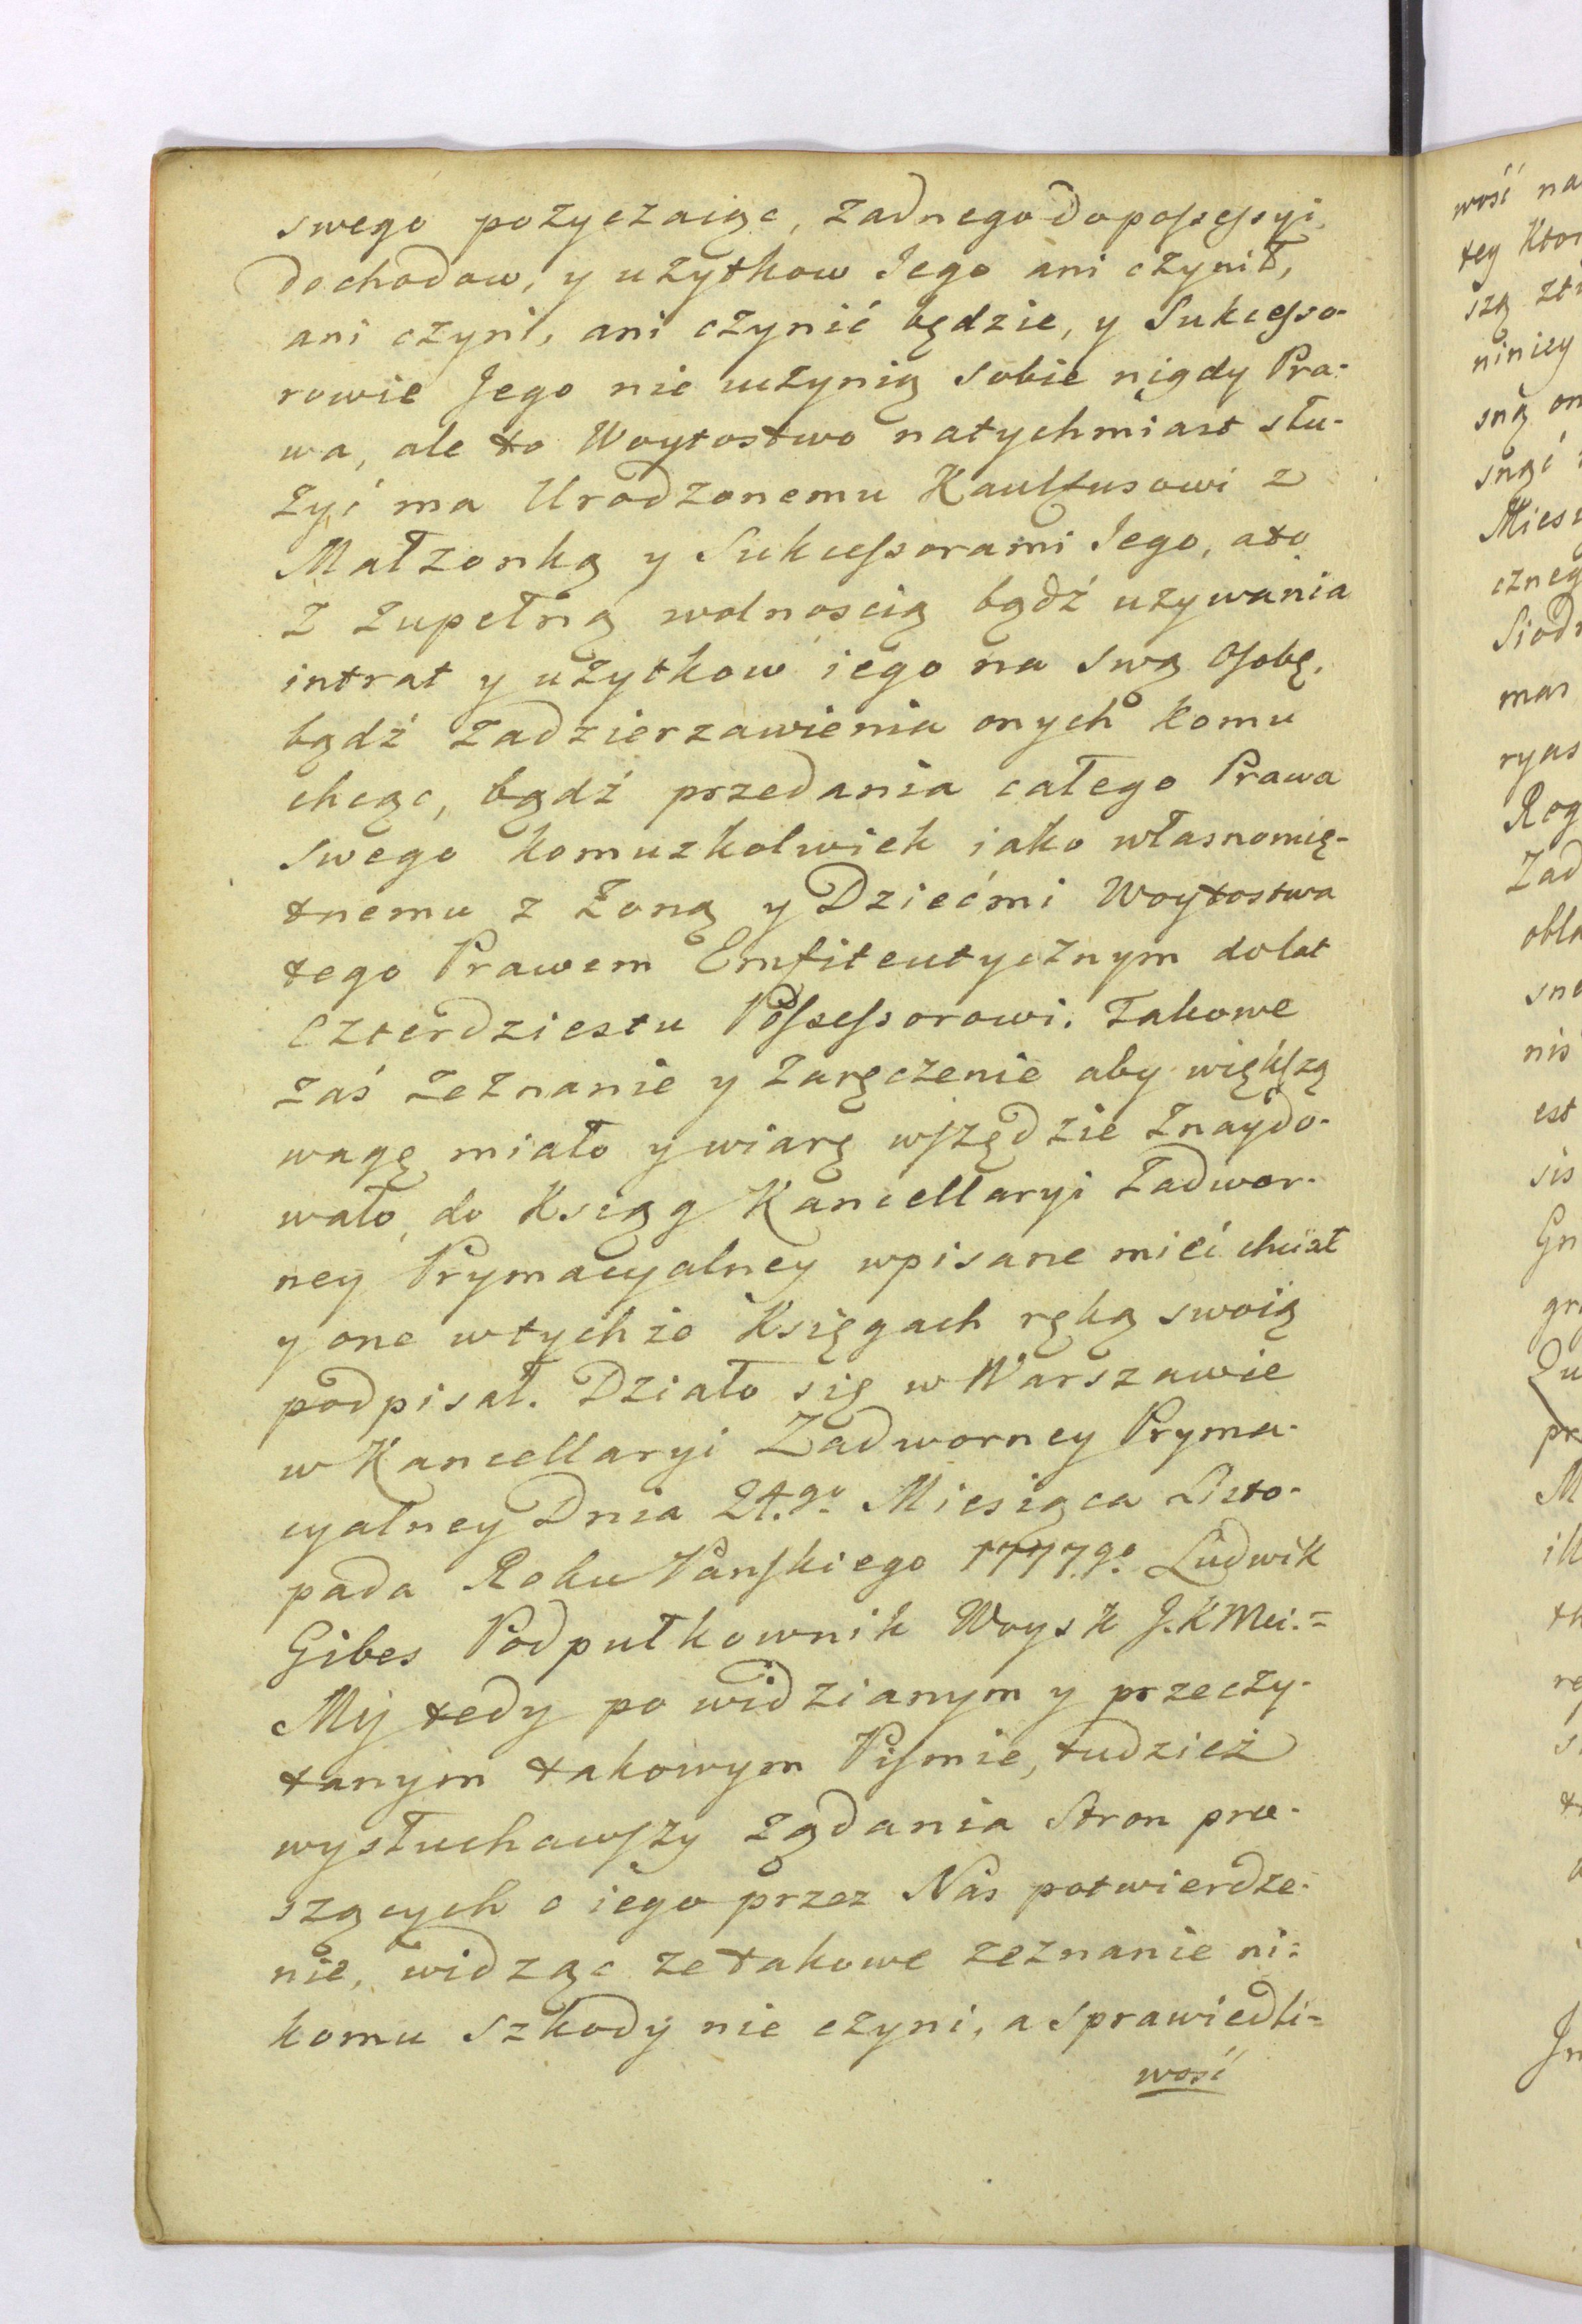 swego pozyczaiąc, zadnego do possessyi
dochodow, y użytkow Jego ani czynił,
ani czyni, ani czynić będzie, y Sukcesso-
rowie Jego nie uczynią sobie nigdy Pra-
wa, ale to Woytostwo natychmiast słu-
żyć ma Urodzonemu Kaulfusowi z
Małzonką y Sukcessorami Jego, a to
z zupełną wolnoscią bądź uzywania
intrat y użytkow iego na swą Osobę,
bądź zadzierzawienia onych komu
chcąc, bądź przedania całego Prawa
swego komuzkolwiek iako własnomię-
tnemu z Żoną y Dziećmi Woytostwa
tego Prawem Emfiteutycznym do lat
czterdziestu Possessorowi. Takowe
zaś zeznanie y zaręczenie aby większą
wagę miało y wiarę wszędzie znaydo-
wało, do Ksiąg Kancellaryi Zadwor-
ney Prymacyalney wpisane mieć chciał
y one w tychże Księgach ręką swoią
podpisał. Działo się w Warszawie
w Kancellaryi Zadworney Pryma-
cyalney Dnia 24.go Miesiąca Listo-
pada Roku Pańskiego 1777.go Ludwik
Gibes Podpułkownik Woysk J.K Mci.=
My tedy po widzianym y przeczy-
tanym takowym Pismie, tudzież
wysłuchawszy żądania Stron pro-
szących o iego przez Nas potwierdze-
nie, widząc ze takowe zeznanie ni-
komu szkody nie czyni, a sprawiedli=
wość
wość na
tey Ktor
szą
niniey
sną
Mies
czneg
Siod
mas
ryas
Rog
Zad
obla
sne
nis
est
sis
Gn
gr
Qu
pr
M
ill
th